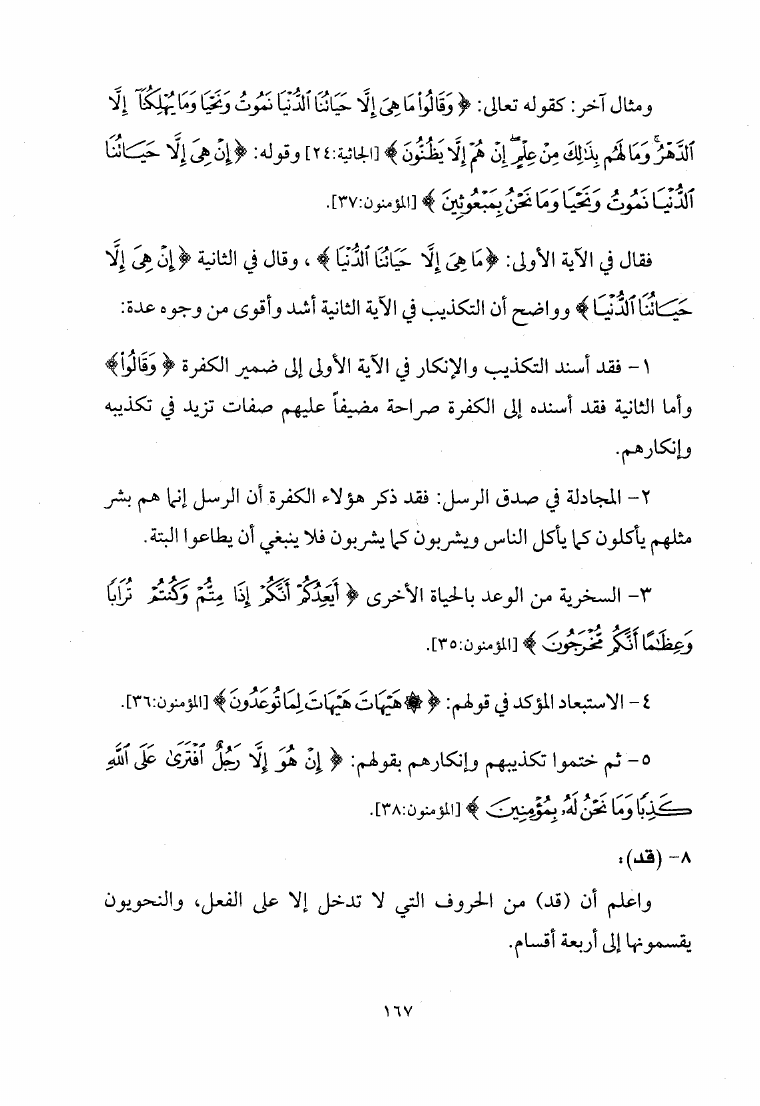 ومثال آخر: كقوله تعالى: ﴿ وَقَالُوا۟ مَا هِىَ إِلَّا حَيَاتُنَا ٱلدُّنْيَا نَمُوتُ وَنَحْيَا وَمَا يُهْلِكُنَآ إِلَّا
ٱلدَّهْرُ ۚ وَمَا لَهُم بِذَٰلِكَ مِنْ عِلْمٍ ۖ إِنْ هُمْ إِلَّا يَظُنُّونَ ﴾ [الجاثية:٢٤] وقوله: ﴿ إِنْ هِىَ إِلَّا حَيَاتُنَا
ٱلدُّنْيَا نَمُوتُ وَنَحْيَا وَمَا نَحْنُ بِمَبْعُوثِينَ ﴾ [المؤمنون:٣٧].
فقال في الآية الأولى: ﴿ مَا هِىَ إِلَّا حَيَاتُنَا ٱلدُّنْيَا ﴾ ، وقال في الثانية ﴿ إِنْ هِىَ إِلَّا
حَيَاتُنَا ٱلدُّنْيَا ﴾ وواضح أن التكذيب في الآية الثانية أشد وأقوى من وجوه عدة:
١- فقد أسند التكذيب والإنكار في الآية الأولى إلى ضمير الكفرة ﴿ وَقَالُوا۟ ﴾
وأما الثانية فقد أسنده إلى الكفرة صراحة مضيفاً عليهم صفات تزيد في تكذيبه
وإنكارهم.
٢- المجادلة في صدق الرسل: فقد ذكر هؤلاء الكفرة أن الرسل إنما هم بشر
مثلهم يأكلون كما يأكل الناس ويشربون كما يشربون فلا ينبغي أن يطاعوا البتة.
٣- السخرية من الوعد بالحياة الأخرى ﴿ أَيَعِدُكُمْ أَنَّكُمْ إِذَا مِتُّمْ وَكُنتُمْ تُرَابًا
وَعِظَٰمًا أَنَّكُم مُّخْرَجُونَ ﴾ [المؤمنون:٣٥].
٤- الاستبعاد المؤكد في قولهم: ﴿ ۞ هَيْهَاتَ هَيْهَاتَ لِمَا تُوعَدُونَ ﴾ [المؤمنون:٣٦].
٥- ثم ختموا تكذيبهم وإنكارهم بقولهم: ﴿ إِنْ هُوَ إِلَّا رَجُلٌ ٱفْتَرَىٰ عَلَى ٱللَّهِ
كَذِبًا وَمَا نَحْنُ لَهُۥ بِمُؤْمِنِينَ ﴾ [المؤمنون:٣٨].
٨- (قد):
واعلم أن (قد) من الحروف التي لا تدخل إلا على الفعل، والنحويون
يقسمونها إلى أربعة أقسام.
١٦٧